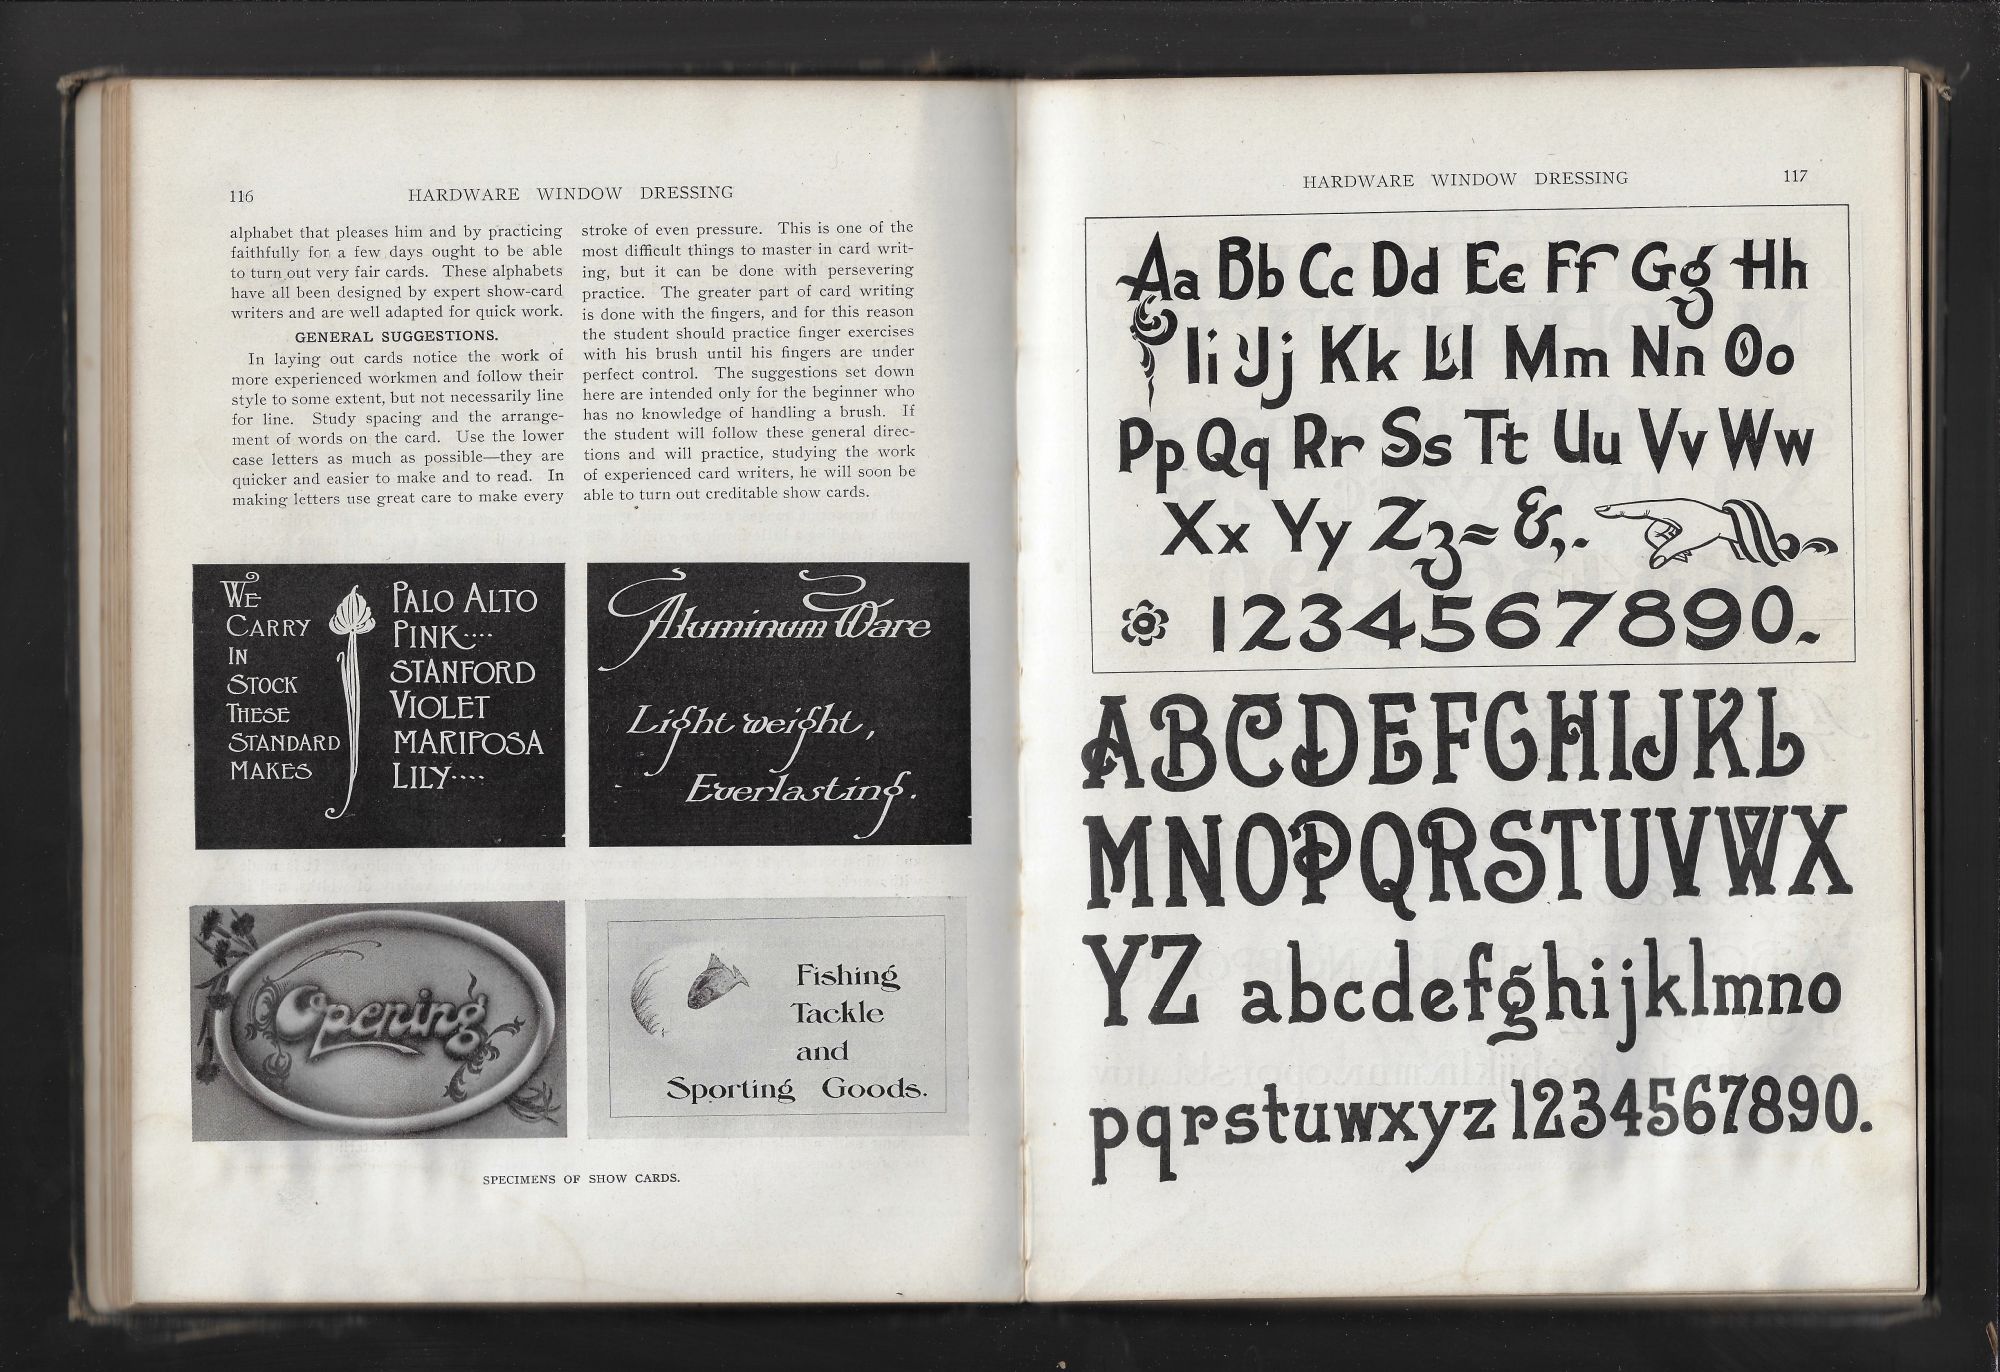 116
HARDWARE WINDOW DRESSING
alphabet that pleases him and by practicing
faithfully for a few days ought to be able
to turn out very fair cards. These alphabets
have all been designed by expert show-card
writers and are well adapted for quick work.
GENERAL SUGGESTIONS.
In laying out cards notice the work of
more experienced workmen and follow their
style to some extent, but not necessarily line
for line. Study spacing and the arrange-
ment of words on the card. Use the lower
case letters as much as possible—they are
quicker and easier to make and to read. In
making letters use great care to make every
stroke of even pressure. This is one of the
most difficult things to master in card writ-
ing, but it can be done with persevering
practice. The greater part of card writing
is done with the fingers, and for this reason
the student should practice finger exercises
with his brush until his fingers are under
perfect control. The suggestions set down
here are intended only for the beginner who
has no knowledge of handling a brush. If
the student will follow these general direc-
tions and will practice, studying the work
of experienced card writers, he will soon be
able to turn out creditable show cards.
WE
CARRY
IN
STOCK
THESE
STANDARD
MAKES
PALO ALTO
PINK....
STANFORD
VIOLET
MARIPOSA
LILY....
Aluminum Ware
Light weight,
Everlasting.
Opening
Fishing
Tackle
and
Sporting Goods.
SPECIMENS OF SHOW CARDS.
HARDWARE WINDOW DRESSING
117
Aa Bb Cc Dd Ee Ff Gg Hh
Ii Jj Kk Ll Mm Nn Oo
Pp Qq Rr Ss Tt Uu Vv Ww
Xx Yy Zz = &,.
1234567890.
ABCDEFGHIJKL
MNOPQRSTUVWX
YZ abcdefghijklmno
pqrstuwxyz 1234567890.